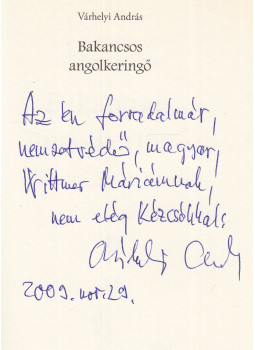 Várhelyi András
Bakancsos
angolkeringő
Az én forradalmár,
nemzetvédő, magyar,
Wittner Máriámnak,
nem elég kézcsókkal:
2009. nov. 29.